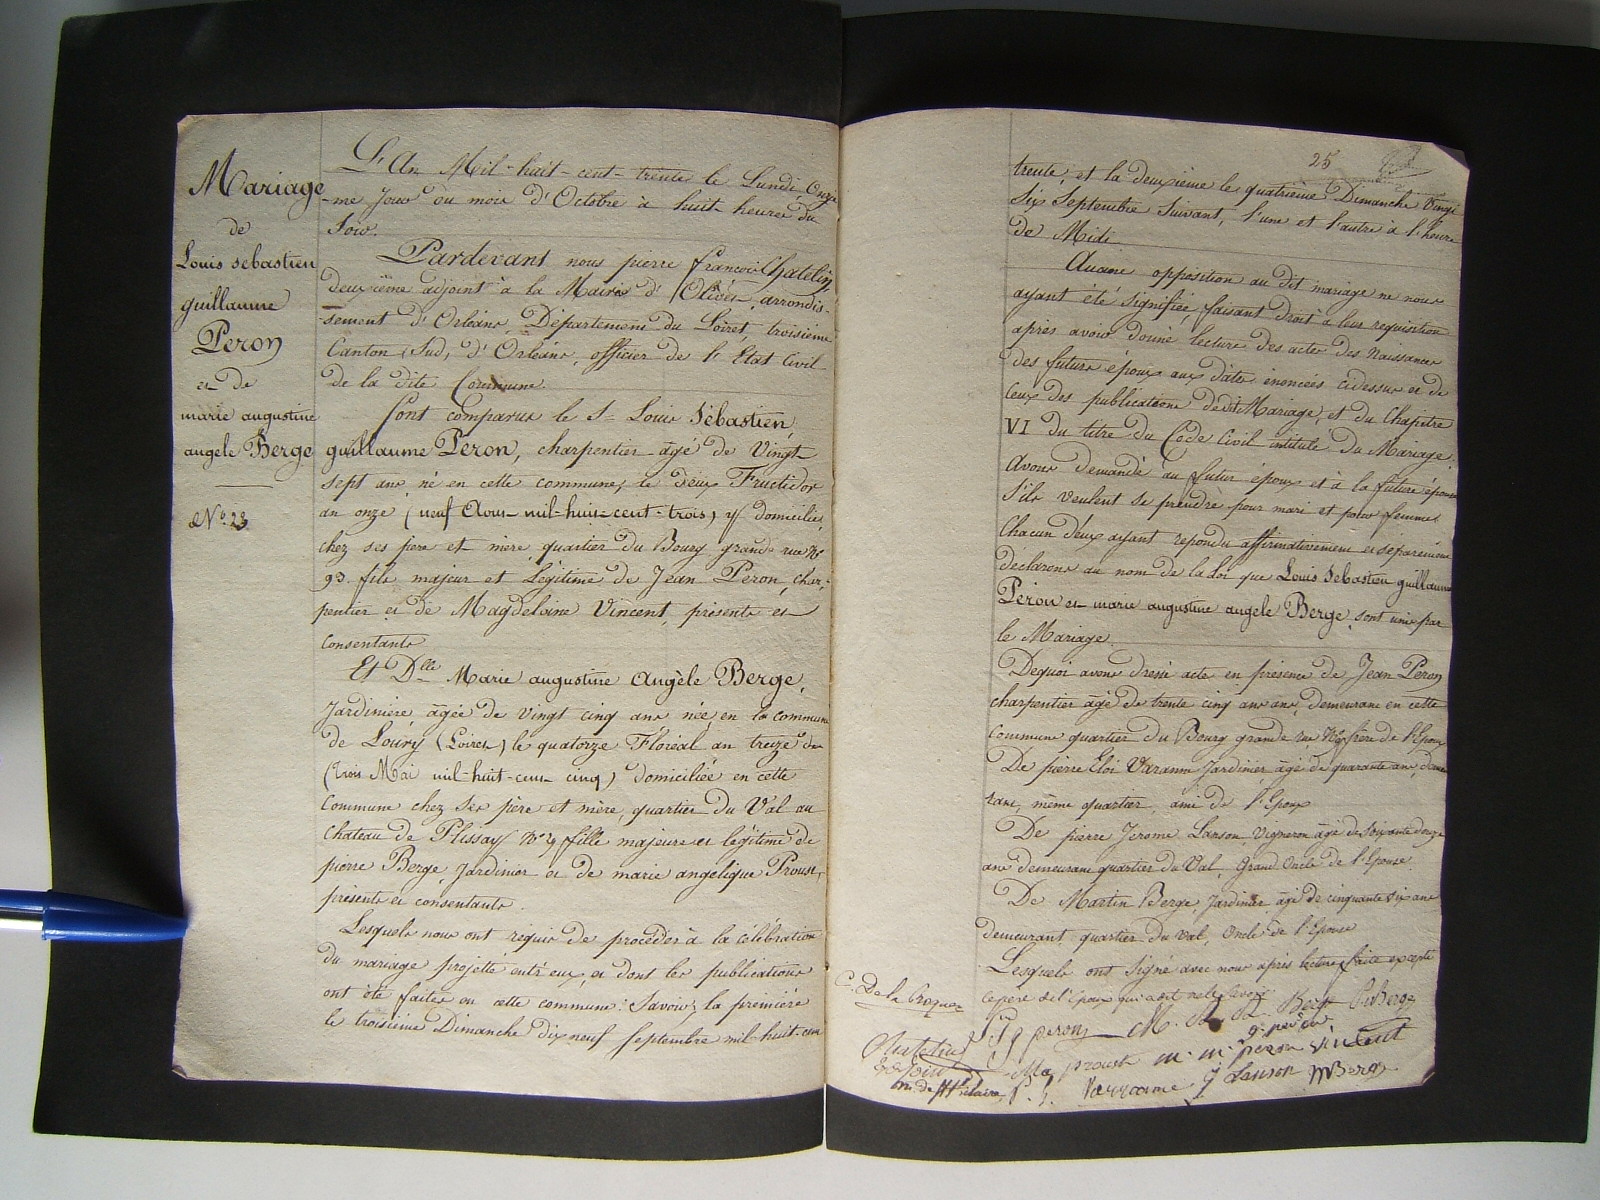 Mariage
de
Louis sebastien
guillaume
Peron
et de
marie augustine
angele Berge
N.º 23
L'An Mil-huit-cent-trente le Lundi, Onze
-me Jour du mois d'Octobre à huit heures du
Soir.
Pardevant nous pierre françois Chatelin
deuxième adjoint à la Mairie d'Olivet, arrondis-
-sement d'Orléans, Département du Loiret, troisième
Canton (Sud) d'Orléans, officier de l'Etat Civil
de la dite Commune.
Sont comparus le Sr Louis Sébastien,
guillaume Peron, charpentier âgé de Vingt
sept ans né en cette commune, le deux Fructidor
an onze (neuf Aout mil-huit-cent-trois) y domicilié
chez ses pere et mère, quartier du Bourg grande rue Nº
93. fils majeur et Légitime de Jean Peron, char-
pentier et de Magdeloine Vincent, présents et
consentants
Et Dlle Marie augustine Angèle Berge,
Jardinière, âgée de vingt cinq ans née, en la commune
de Loury (Loiret) le quatorze Floréal an treize
(trois Mai mil-huit-cent cinq) domiciliée en cette
Commune chez ses père et mère, quartier du Val au
Chateau de Plissay Nº 9 fille majeure et légitime de
pierre Berge, Jardinier et de marie angélique Proust,
présents et consentants.
Lesquels nous ont requis de procéder à la célébration
du mariage projetté entr'eux, et dont les publications
ont été faites en cette commune: Savoir; la première
le troisième Dimanche dix neuf Septembre mil-huit-cent
25
trente; et la deuxième le quatrième Dimanche Vingt
Six Septembre Suivant, l'une et l'autre à l'heure
de Midi.
Aucune opposition au dit mariage ne nous
ayant été signifiée, faisant droit à leur requisition
après avoir donné lecture des actes des Naissances
des futurs époux aux dates énoncées cidessus et de
Ceux des publications dudit Mariage, et du Chapitre
VI du titre du Code Civil intitulé du Mariage.
Avons demandé au futur époux et à la future épouse
S'ils veulent se prendre pour mari et pour femme.
Chacun d'eux ayant repondu affirmativement et séparément
déclarons au nom de la Loi que Louis Sebastien guillaume
Peron et marie augustine angele Berge, sont unis par
le Mariage.
Dequoi avons dressé acte en présence de Jean Peron
charpentier âgé de trente cinq ans, demeurant en cette
Commune quartier du Bourg grande rue frère de l'Epoux
De pierre Eloi Varanne Jardinier âgé de quarante ans, demeu
rant, même quartier, ami de l'Epoux
De pierre Jerome Lanson, Vigneron âgé de Soixante douze
ans demeurant quartier du Val, Grand Oncle de l'Epouse.
De Martin Berge, Jardinier âgé de cinquante six ans
demeurant quartier du Val, Oncle de l'Epouse
Lesquels ont signé avec nous après lecture faite excepté
le pere de l'Epoux qui a dit ne le Savoir.
C. De la
peron M. Berge
Ma proust m. m. peron vincent
P. E. Varranne Lanson M Berge